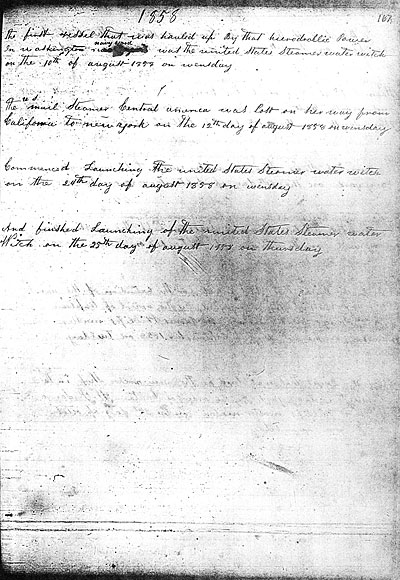 1858
167
the first vessel that was hauled up By that hierodrollic Power
navy yard
In washington was the united States Steamer water witch
on the 10th of august 1858 on wensday
The u.s. mail Steamer Central america was lost on her way from
California to new york on the 12th day of august 1858 on wensday
Commenced Launching the united States Steamer water witch
on the 24th day of august 1858 on wensday
And finished Launching of the united States Steamer water
Witch on the 25th day of august 1858 on thursday